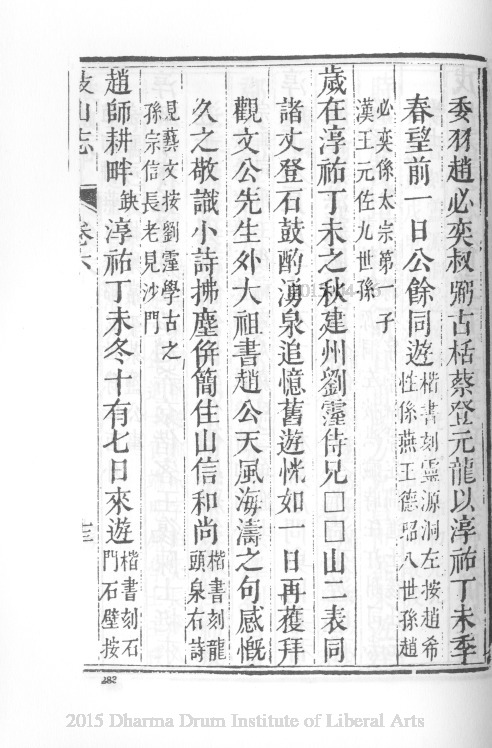 委羽趙必奕叔弼古栝蔡登元龍以淳祐丁未季
春望前一日公餘同遊
楷書刻靈源洞左按趙希
性係燕王德昭八世孫趙
必奕係太宗第一子
漢王元佐九世孫
歲在淳祐丁未之秋建州劉霪侍兄□□山二表同
諸丈登石鼓酌湧泉追憶舊遊恍如一日再獲拜
觀文公先生外大祖書趙公天風海濤之句感慨
久之敬識小詩拂塵併簡住山信和尚
楷書刻龍
頭泉右詩
見藝文按劉霪學古之
孫宗信長老見沙門
趙師耕畊缺淳祐丁未冬十有七日來遊
楷書刻石
門石壁按
鼓山志 卷六
2015 Dharma Drum Institute of Liberal Arts